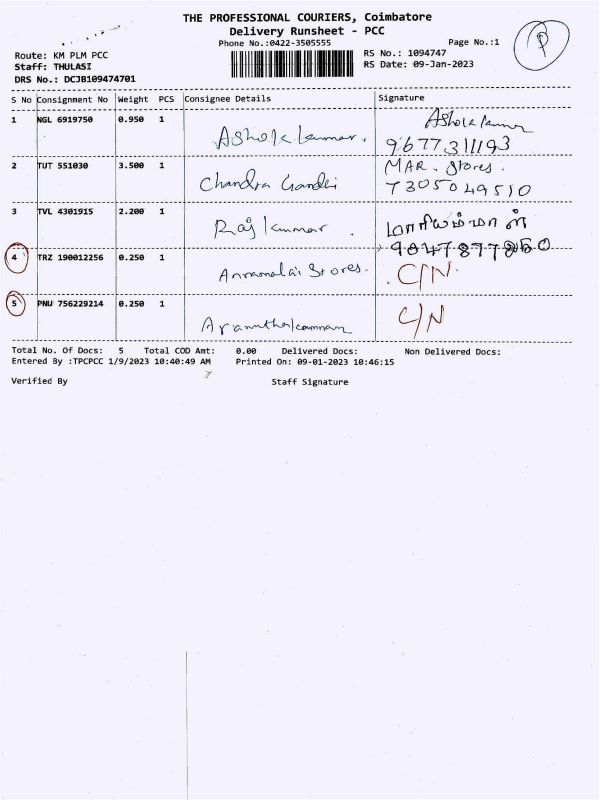 THE PROFESSIONAL COURIERS, Coimbatore
Delivery Runsheet - PCC
Phone No.:0422-3505555
Page No.:1
Route: KM PLM PCC
Staff: THULASI
DRS No.: DCJB109474701
RS No.: 1094747
RS Date: 09-Jan-2023
P
S No Consignment No Weight PCS Consignee Details Signature
1 NGL 6919750 0.950 1 Ashok kumar. Ashok kumar
9677311193
2 TUT 551030 3.500 1 Chandra Gandhi MAR. Stores.
7305049510
3 TVL 4301915 2.200 1 Raj kummar. மாரியம்மாள்
4 TRZ 190012256 0.250 1 Annamalai Stores. C/N.
5 PNU 756229214 0.250 1 C/N
Total No. Of Docs: 5 Total COD Amt: 0.00 Delivered Docs: Non Delivered Docs:
Entered By :TPCPCC 1/9/2023 10:40:49 AM Printed On: 09-01-2023 10:46:15
Verified By Staff Signature